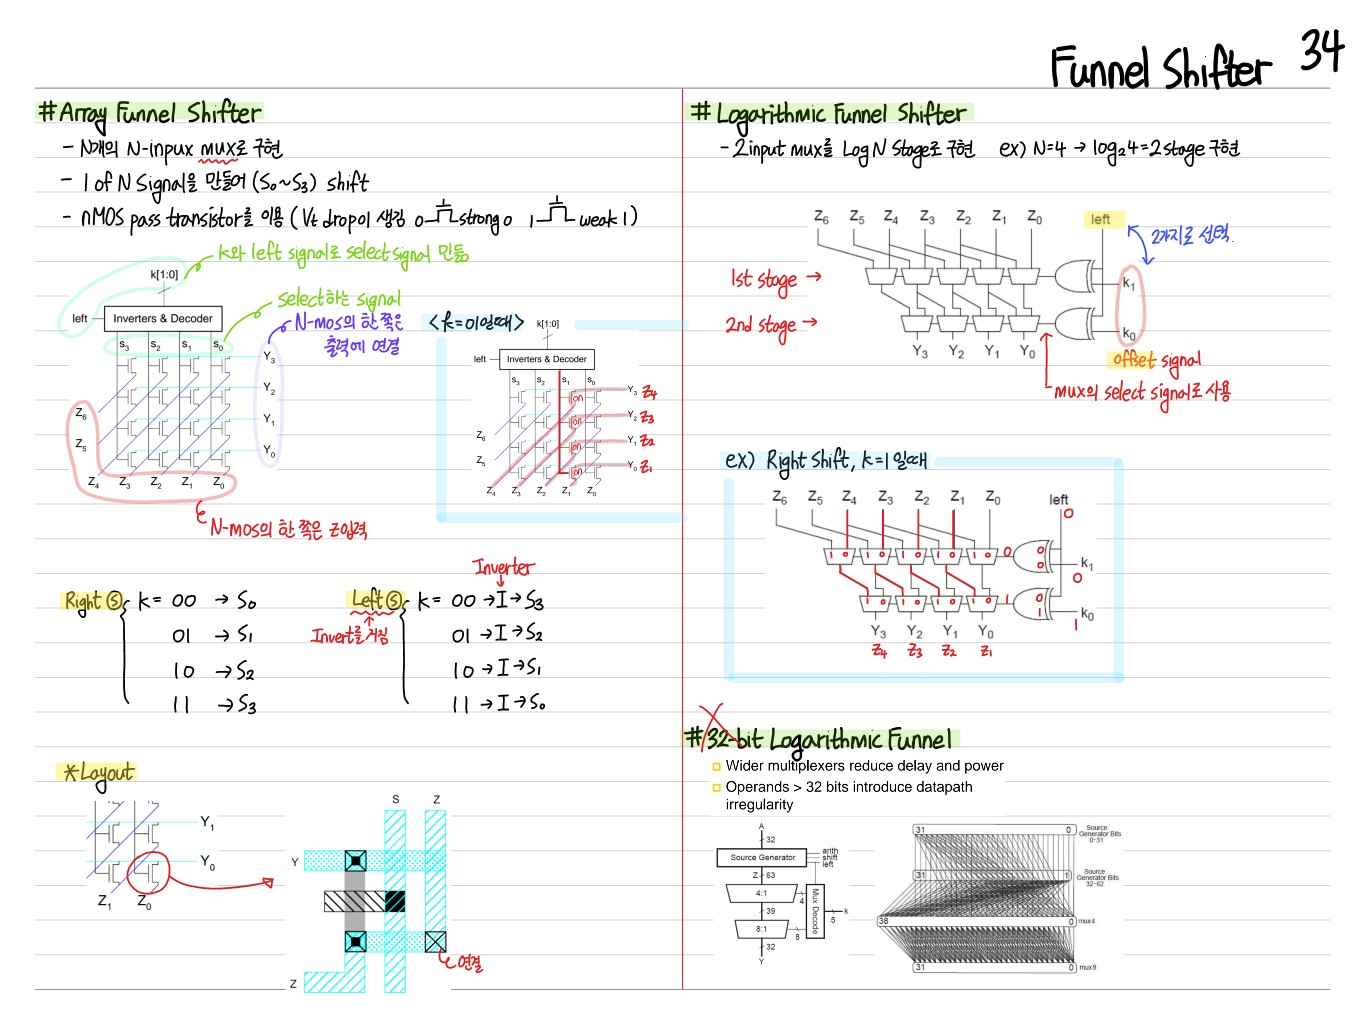 Funnel Shifter 34
# Array Funnel Shifter
- N개의 N-inpux mux로 구현
- 1 of N Signal을 만들어 (S₀~S₃) shift
- nMOS pass transistor를 이용 ( Vt drop이 생김 0 strong 0 1 weak 1 )
k와 left signal로 select signal 만듦
k[1:0]
left
Inverters & Decoder
select하는 signal
N-mos의 한 쪽은
출력에 연결
s₃ s₂ s₁ s₀
Y₃
Y₂
Y₁
Y₀
Z₆
Z₅
Z₄ Z₃ Z₂ Z₁ Z₀
N-mos의 한 쪽은 Z입력
<k=01일때>
k[1:0]
left
Inverters & Decoder
s₃ s₂ s₁ s₀
on Y₃ Z₄
on Y₂ Z₃
on Y₁ Z₂
on Y₀ Z₁
Z₆
Z₅
Z₄ Z₃ Z₂ Z₁ Z₀
Inverter
Right ⓢ k = 00 → S₀
01 → S₁
10 → S₂
11 → S₃
Left ⓢ k = 00 → I → S₃
Invert를 거침
01 → I → S₂
10 → I → S₁
11 → I → S₀
* Layout
Y₁
Y₀
Z₁ Z₀
S Z
Y
Z
연결
# Logarithmic Funnel Shifter
- 2input mux를 Log N Stage로 구현 ex) N=4 → log₂4=2 stage 구현
Z₆ Z₅ Z₄ Z₃ Z₂ Z₁ Z₀ left
2가지로 선택.
1st stage →
k₁
2nd stage →
k₀
Y₃ Y₂ Y₁ Y₀
offset signal
mux의 select signal로 사용
ex) Right Shift, k=1일때
Z₆ Z₅ Z₄ Z₃ Z₂ Z₁ Z₀ left
0
1 0 1 0 1 0 1 0 1 0 0 0
0
k₁
0
1 0 1 0 1 0 1 0 1 0
1
k₀
1
Y₃ Y₂ Y₁ Y₀
Z₄ Z₃ Z₂ Z₁
# 32-bit Logarithmic Funnel
Wider multiplexers reduce delay and power
Operands > 32 bits introduce datapath
irregularity
A
32
Source Generator
arith
shift
left
Z 63
4:1
4
39
8:1
8
32
Y
Mux Decode
k
5
31 0
Source
Generator Bits
0-31
31 1
Source
Generator Bits
32-62
38 0 mux4
31 0 mux8